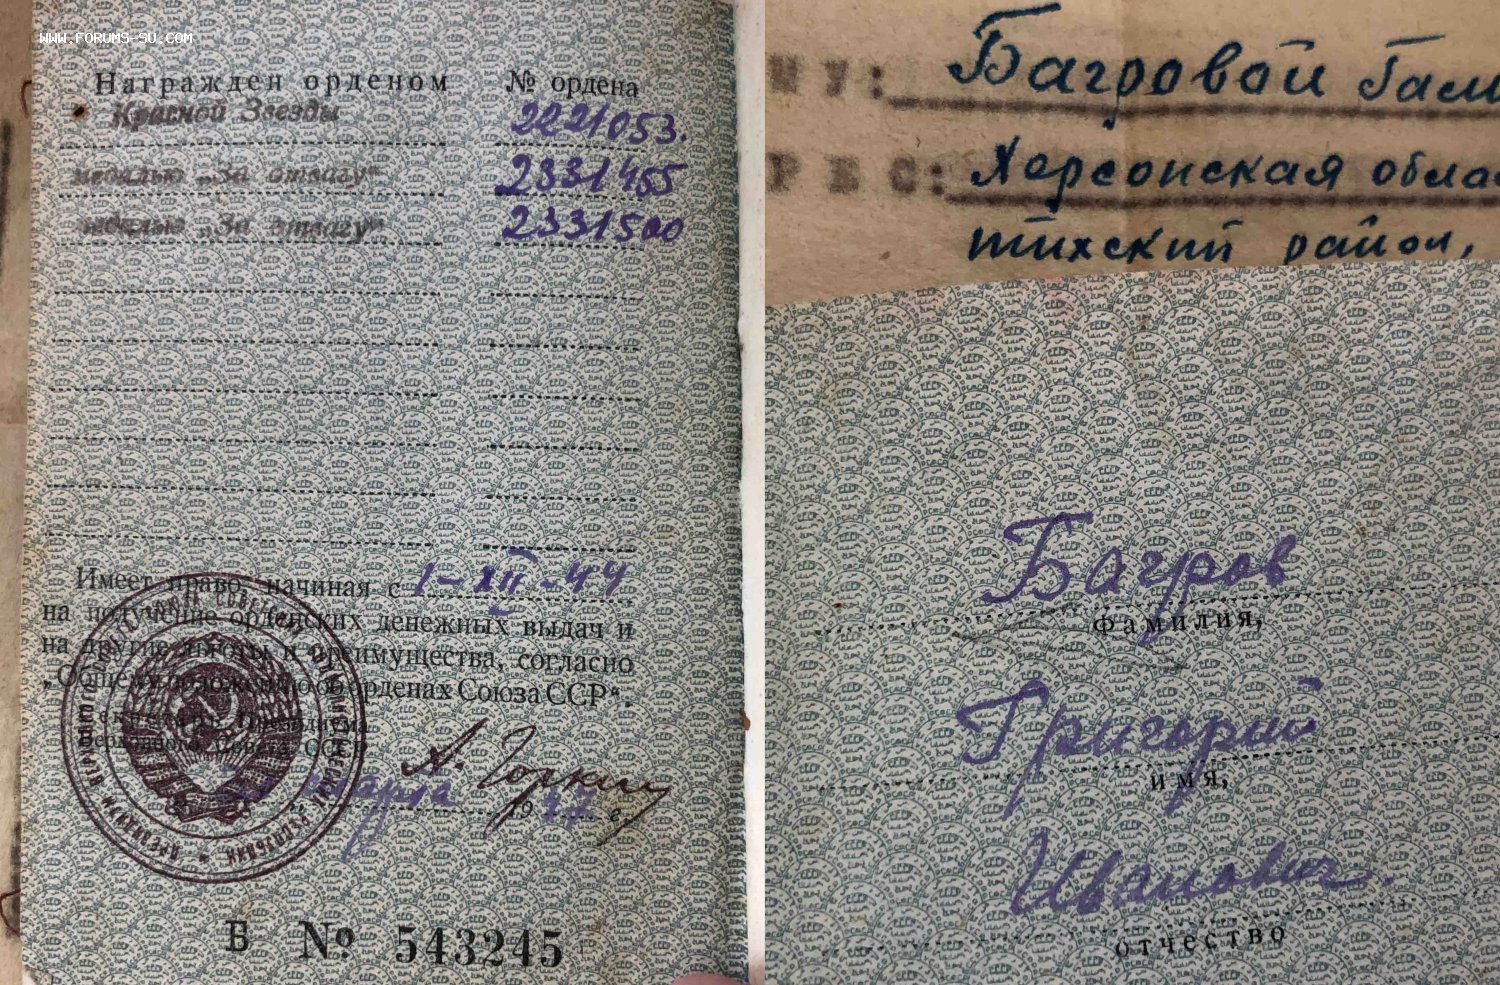 WWW.FORUMS-SU.COM
Награжден орденом № ордена
Красной Звезды 2221053.
медалью „За отвагу“ 2331455
медалью „За отвагу“ 2331500
Имеет право, начиная с 1-XII-44
на получение орденских денежных выдач и
на другие льготы и преимущества, согласно
„Общему положению об орденах Союза ССР“.
Секретарь Президиума
Верховного Совета СССР
А. Горкин
марта 19 г.
Б № 543245
МУ: Багровой Гали
РЕС: Херсонская обла
тихский район,
Багров
фамилия,
Григорий
имя,
Иванович.
отчество